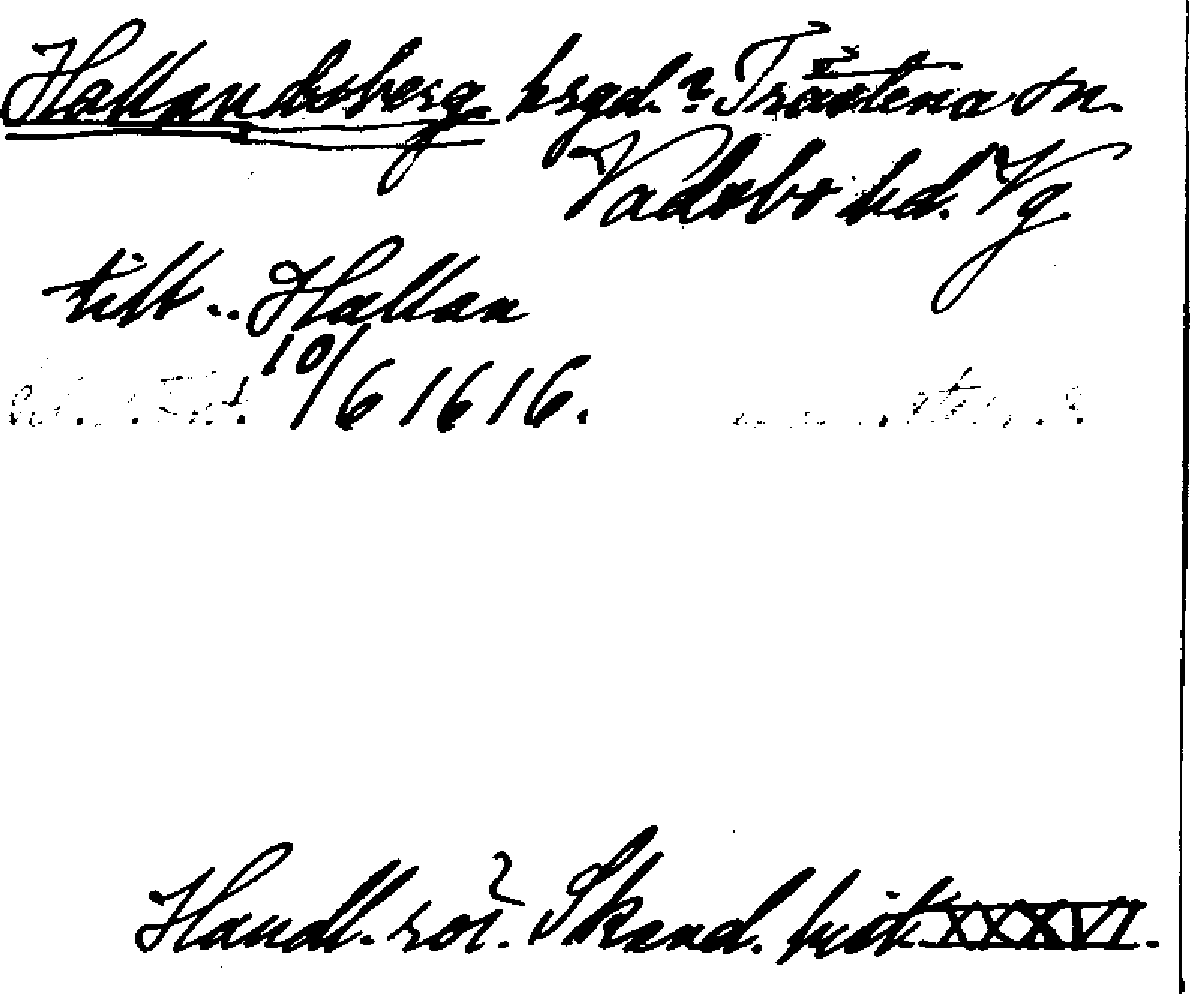 Hallandsberg hrgd.? Trästena sn.
Vadsbo hd. Vg
till .. Hallan
10/6 1616.
Handl. rör. Skand. hist. XXXVI.